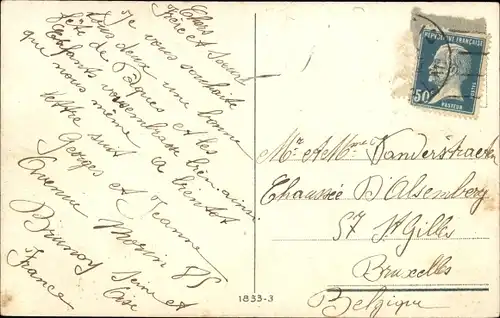 Chers
Frère et Soeur
Je vous souhaite
tous deux une bonne
fête de Pâques et les
Enfants vous embrasse bien ainsi
que nous même a bientôt
lettre suit
Georges et Jeanne
Avenue Morin 85
Brunoy Seine et
Oise
France
REPUBLIQUE FRANÇAISE
50c
POSTES
PASTEUR
Mr et Mme Vanderstraeten
Chaussée D'Alsemberg
57 St Gilles
Bruxelles
Belgique
1833-3